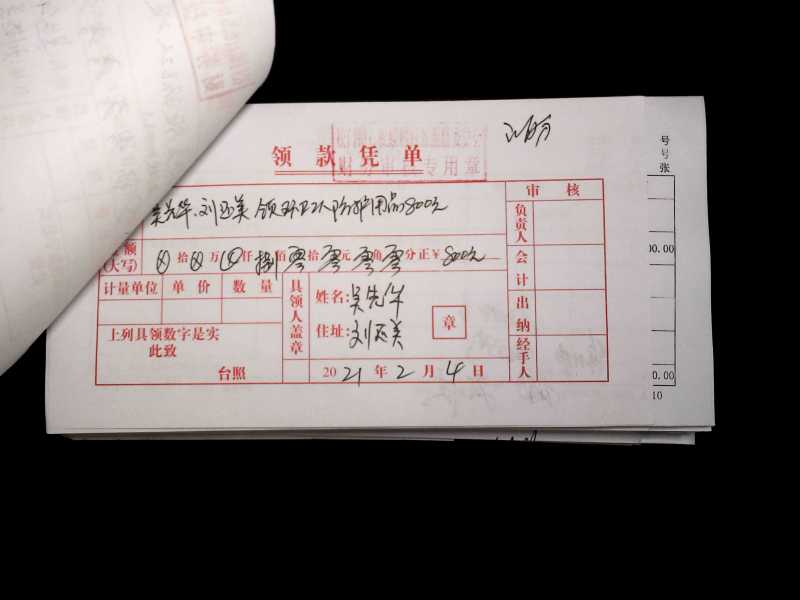 领款凭单
财务审核专用章
吴先华、刘丕美领环卫工人防护用品800元
金额(大写) ⊗拾⊗万⊗仟捌佰零拾零元零角零分正¥800元
计量单位 单价 数量
上列具领数字是实
此致
台照
具领人盖章
姓名:吴先华
住址:刘丕美
章
2021年2月4日
审核
负责人
会计
出纳
经手人
号
号
张
00.00
0.00
10